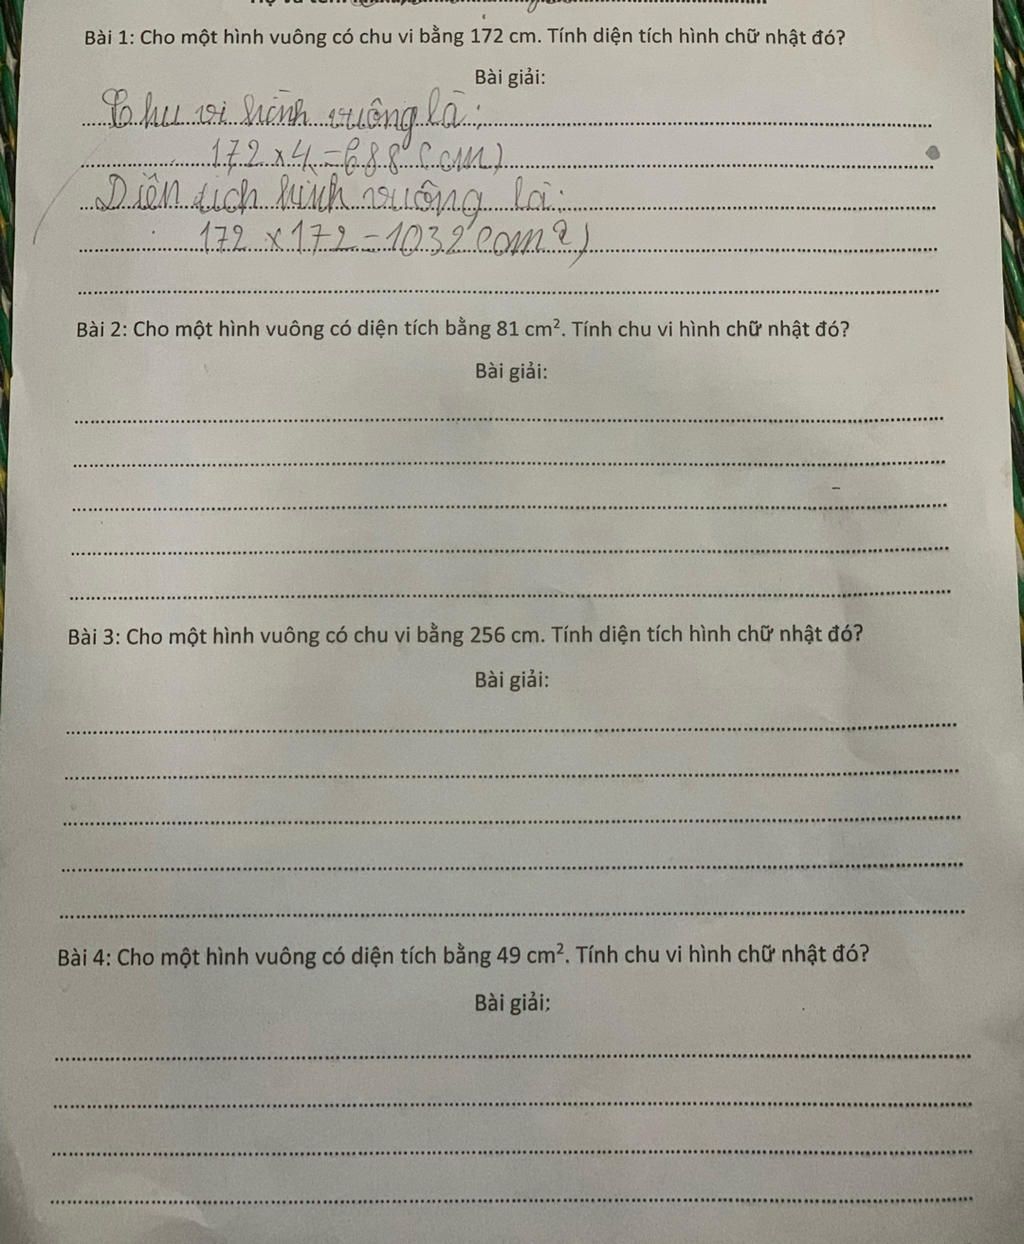 Bài 1: Cho một hình vuông có chu vi bằng 172 cm. Tính diện tích hình chữ nhật đó?
Bài giải:
Chu vi hình vuông là:
172 x 4 = 688 (cm)
Diện tích hình vuông là:
172 x 172 = 1032 (cm2)
Bài 2: Cho một hình vuông có diện tích bằng 81 cm². Tính chu vi hình chữ nhật đó?
Bài giải:
Bài 3: Cho một hình vuông có chu vi bằng 256 cm. Tính diện tích hình chữ nhật đó?
Bài giải:
Bài 4: Cho một hình vuông có diện tích bằng 49 cm². Tính chu vi hình chữ nhật đó?
Bài giải: